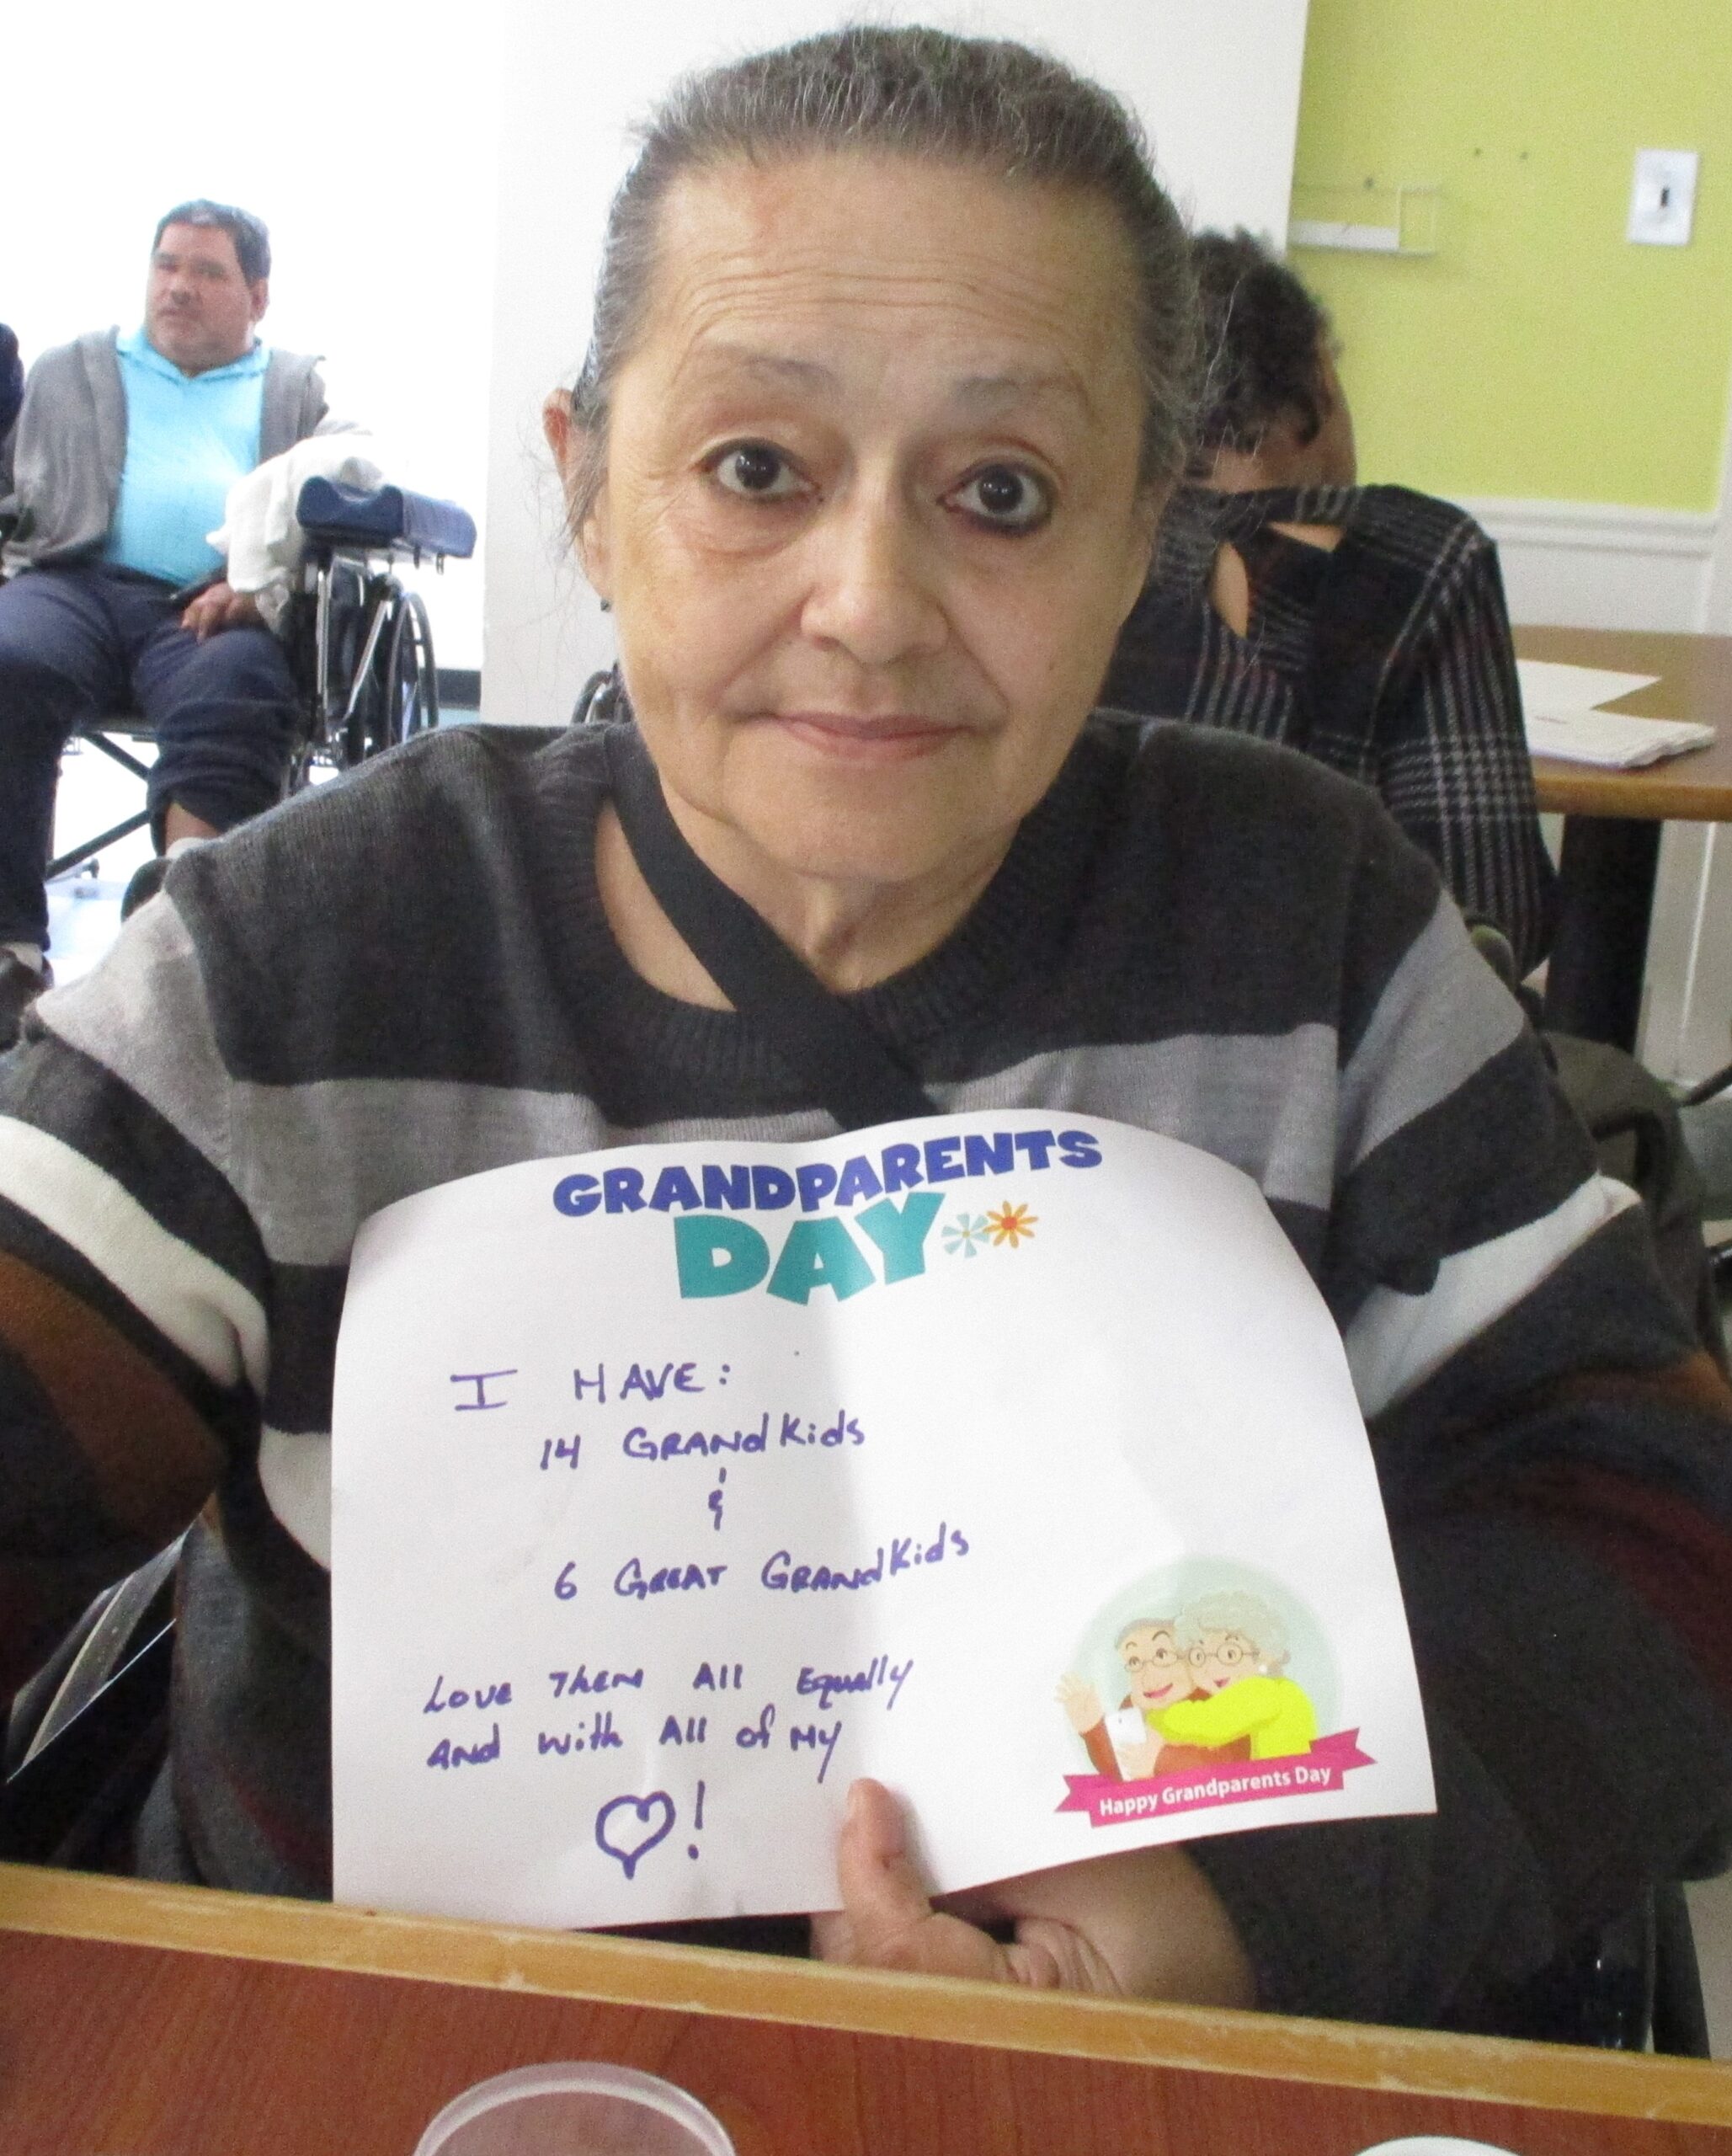 GRANDPARENTS
DAY
I HAVE:
14 GRANdKids
&
6 GREAT GRANdKids
Love Them All Equally
ANd with All of My
!
Happy Grandparents Day